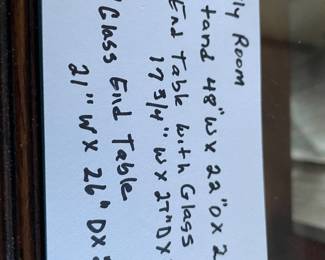 ly Room
tand 48"W x 22"D x 2
End Table with Glass
17 3/4" W x 27"D x
Glass End Table
21" W x 26" D x